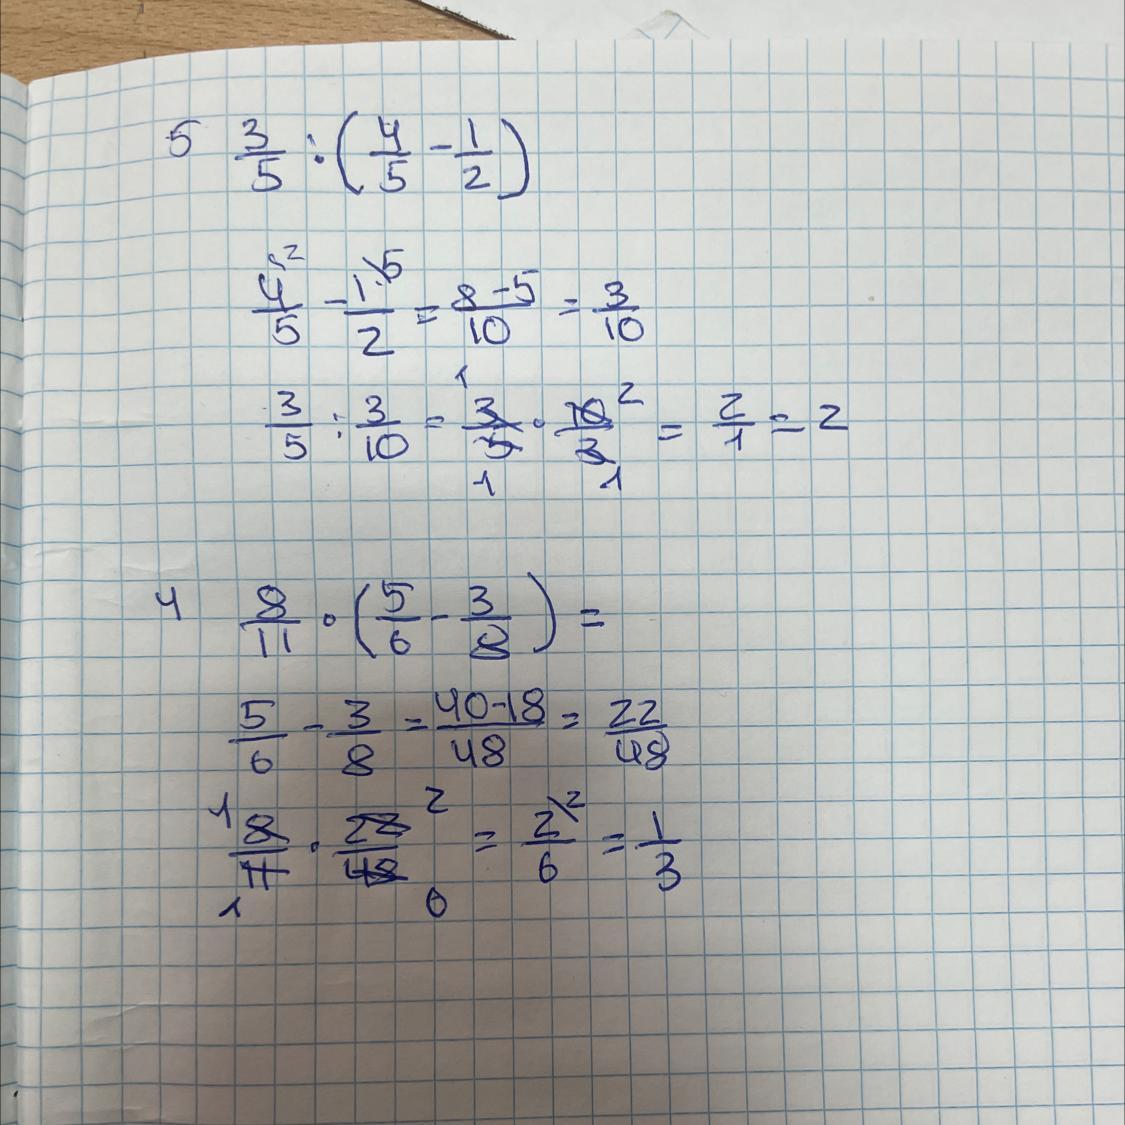 5 3/5 : (4/5 - 1/2)
4·2/5 - 1·5/2 = 8-5/10 = 3/10
3/5 : 3/10 = 3/5 · 10/3 = 2/1 = 2
4 8/11 · (5/6 - 3/8) =
5/6 - 3/8 = 40-18/48 = 22/48
8/11 · 22/48 = 2/6 = 1/3